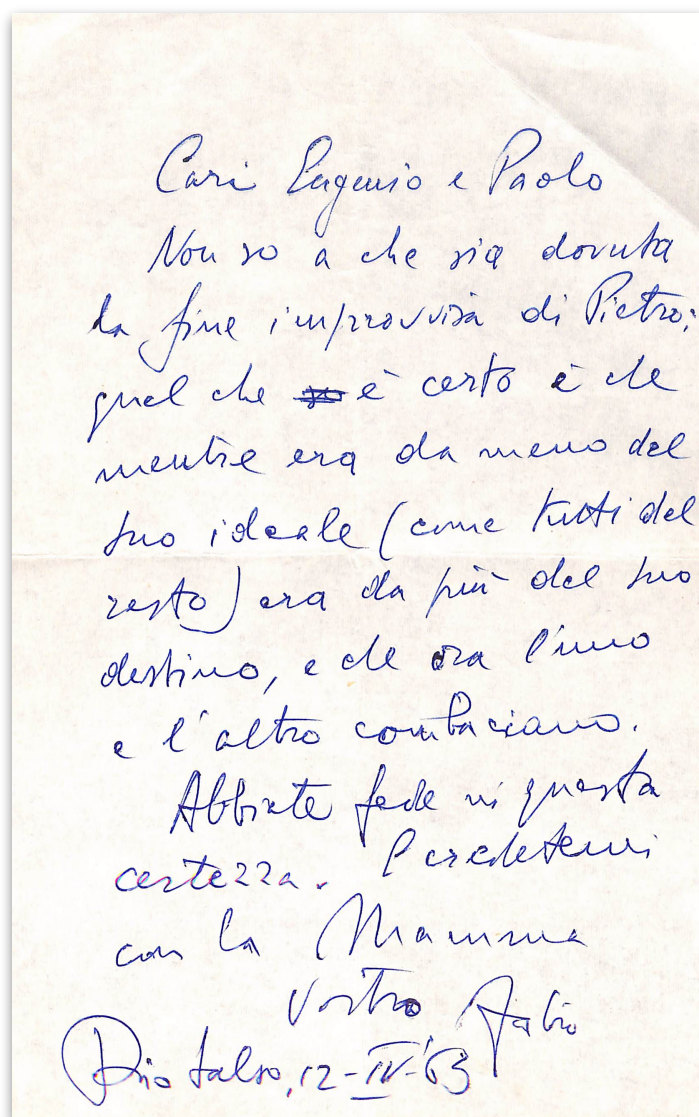 Cari Eugenio e Paolo
Non so a che sia dovuta
la fine improvvisa di Pietro;
quel che so è certo è che
mentre era da meno del
suo ideale (come tutti del
resto) era da più del suo
destino, e che ora l'uno
e l'altro combaciano.
Abbiate fede in questa
certezza. E credetemi
con la Mamma
vostro Fabio
Rio Salso, 12-IV-63